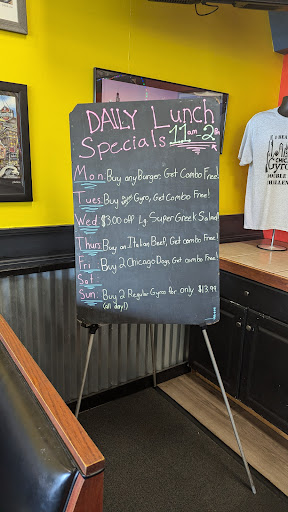 DAILY Lunch
Specials 11am-2
Mon Buy any Burger, Get Combo Free!
Tues Buy Gyro, Get Combo Free!
Wed $3.00 off Lg Super Greek Salad!
Thur Buy an Italian Beef, Get combo Free!
Fri Buy 2 Chicago Dogs, Get combo Free!
Sat
Sun Buy 2 Regular Gyros for only $13.99
(all day!)